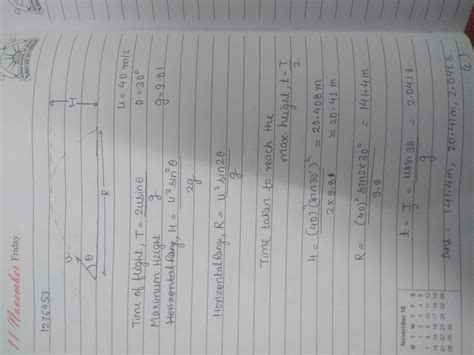 11 November Friday
1276453
H
R
u
θ
u = 40 m/s
θ = 30°
g = 9.81
Time of flight, T = 2usinθ / g
Maximum Height
Horizontal Range, H = u² sin²θ / 2g
Horizontal Range, R = u² sin2θ / g
Time taken to reach the
max. height, t = T/2
H = (40)²(sin30°)² / 2 × 9.81 = 20.408 m
≈ 20.41 m
R = (40)² sin2×30° / 9.8 = 141.4 m
t = T/2 = usin30 / g = 2.041 s
Ans: 141.4m, 20.41m, 2.041 s
(c)
November 16
M T W T F S